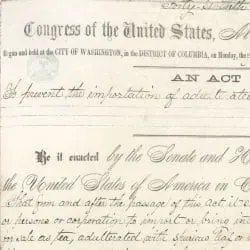 Congress of the United States,
Begun and held at the CITY OF WASHINGTON, in the DISTRICT OF COLUMBIA, on Monday, the
AN ACT
To prevent the importation of adulterated
Be it enacted by the Senate and H
the United States of America in C
That from and after the passage of this Act it s
or persons or corporation to import or bring into
in sale as tea, adulterated with spurious leaf or